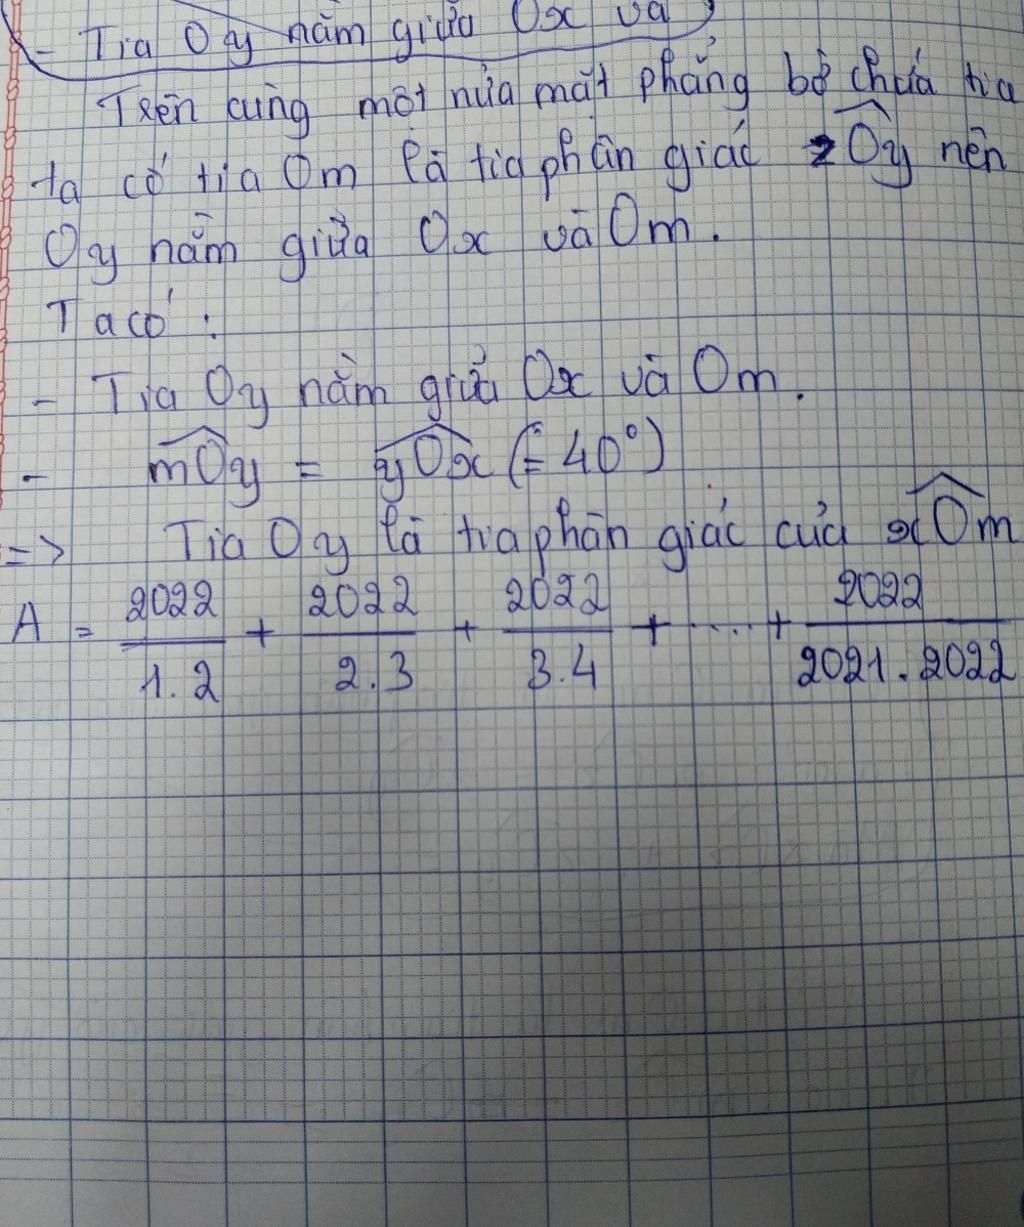 - Tia Oy nằm giữa Ox và
Trên cùng một nửa mặt phẳng bờ chứa tia
ta có tia Om là tia phân giác zÔy nên
Oy nằm giữa Ox và Om.
Ta có :
- Tia Oy nằm giữa Ox và Om.
- mÔy = yÔx (= 40°)
=> Tia Oy là tia phân giác của xÔm
A = 2022/1.2 + 2022/2.3 + 2022/3.4 + ..... + 2022/2021.2022